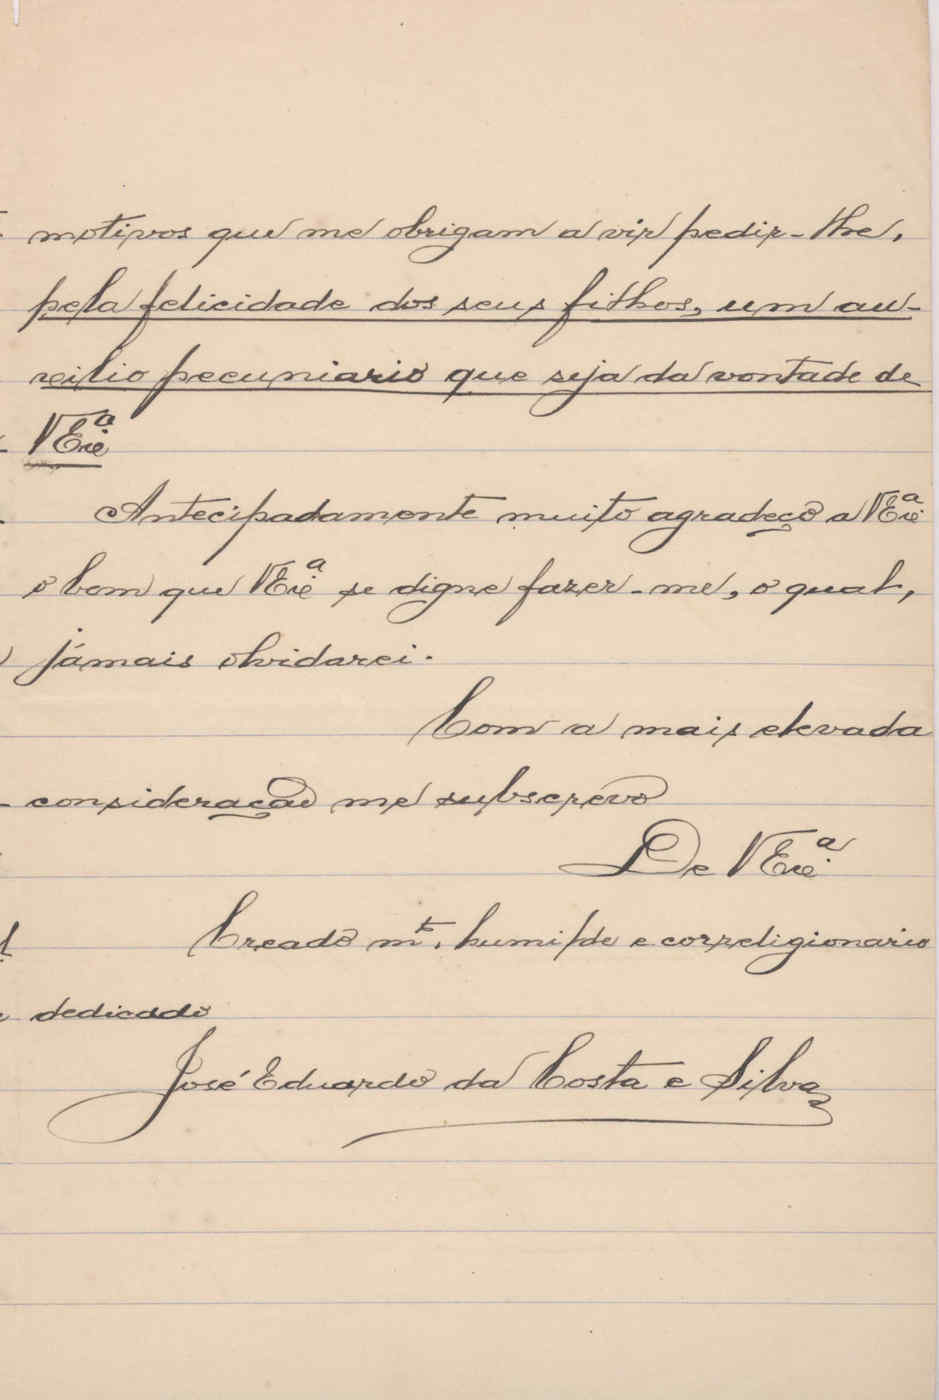 motivos que me obrigam a vir pedir-lhe,
pela felicidade dos seus filhos, um au-
xilio pecuniario que seja da vontade de
VExiª
Antecipadamente muito agradeço a VExiª
o bom que VExiª se digne fazer-me, o qual,
jámais olvidarei.
Com a mais elevada
consideração me subscrevo
De VExiª
Creado mt. humilde e correligionario
dedicado
José Eduardo da Costa e Silva